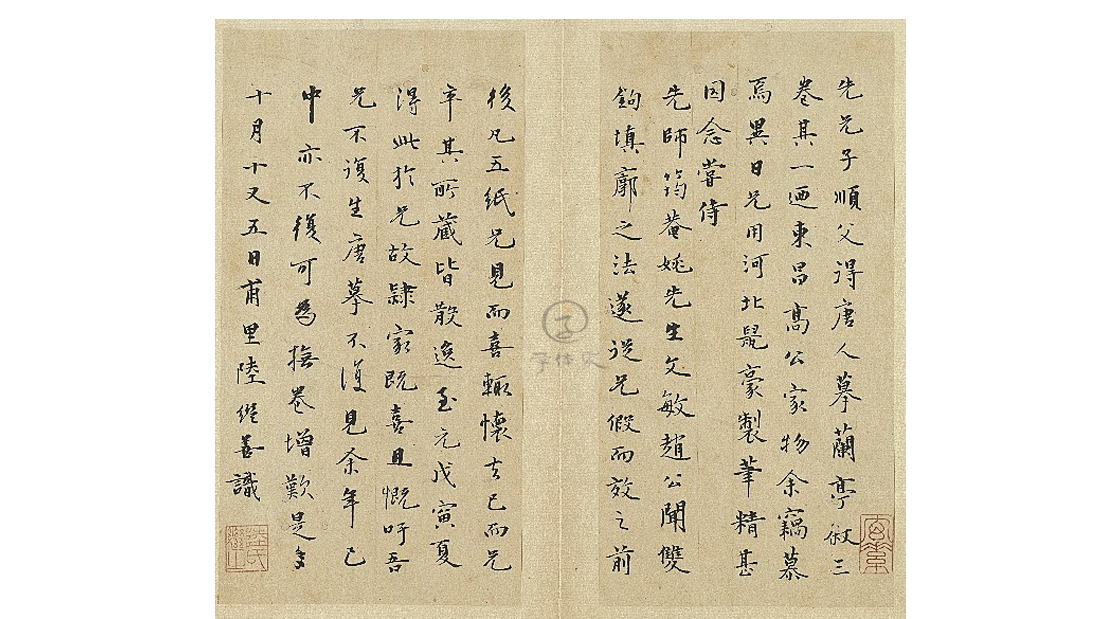 先兄子順父得唐人摹蘭亭敘三
卷其一迺東昌高公家物余竊慕
焉異日兄用河北鼠豪製筆精甚
因念嘗侍
先師筠菴姚先生文敏趙公聞雙
鉤填廓之法遂從兄假而效之前
後凡五紙兄見而喜輒懷去已而兄
卒其所藏皆散逸至元戊寅夏
得此於兄故隸家既喜且慨吁吾
兄不復生唐摹不復見余年已
中亦不復可為撫卷增歎是冬
十月十又五日甫里陸繼善識
陸氏繼之
字体家